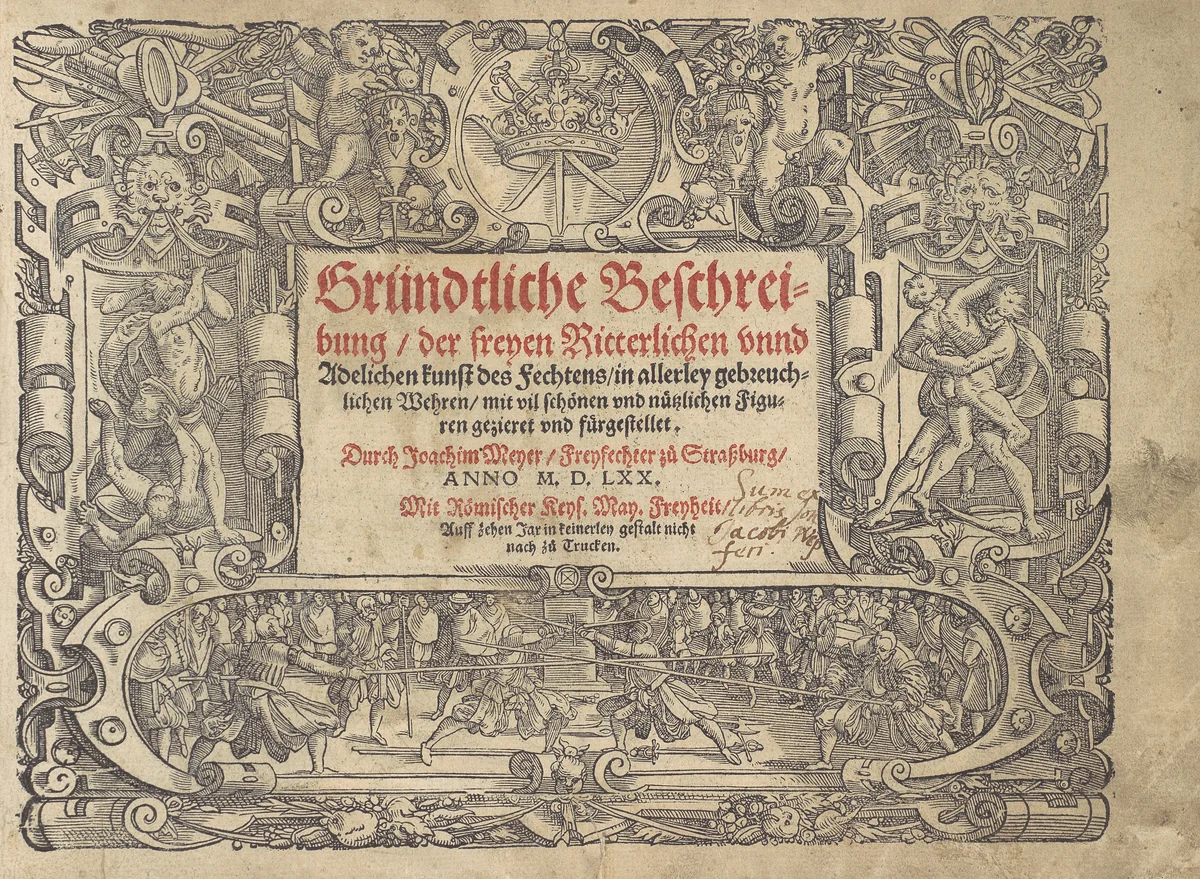 Gründtliche Beschrei=
bung / der freyen Ritterlichen vnnd
Adelichen kunst des Fechtens / in allerley gebreuch=
lichen Wehren / mit vil schönen vnd nützlichen Figu=
ren gezieret vnd fürgestellet.
Durch Joachim Meyer / Freyfechter zů Straßburg /
ANNO M. D. LXX.
Mit Römischer Keys. May. Freyheit /
Auff zehen Jar in keinerley gestalt nicht
nach zů Trucken.
Sum ex
libris
Jacobi
feri.